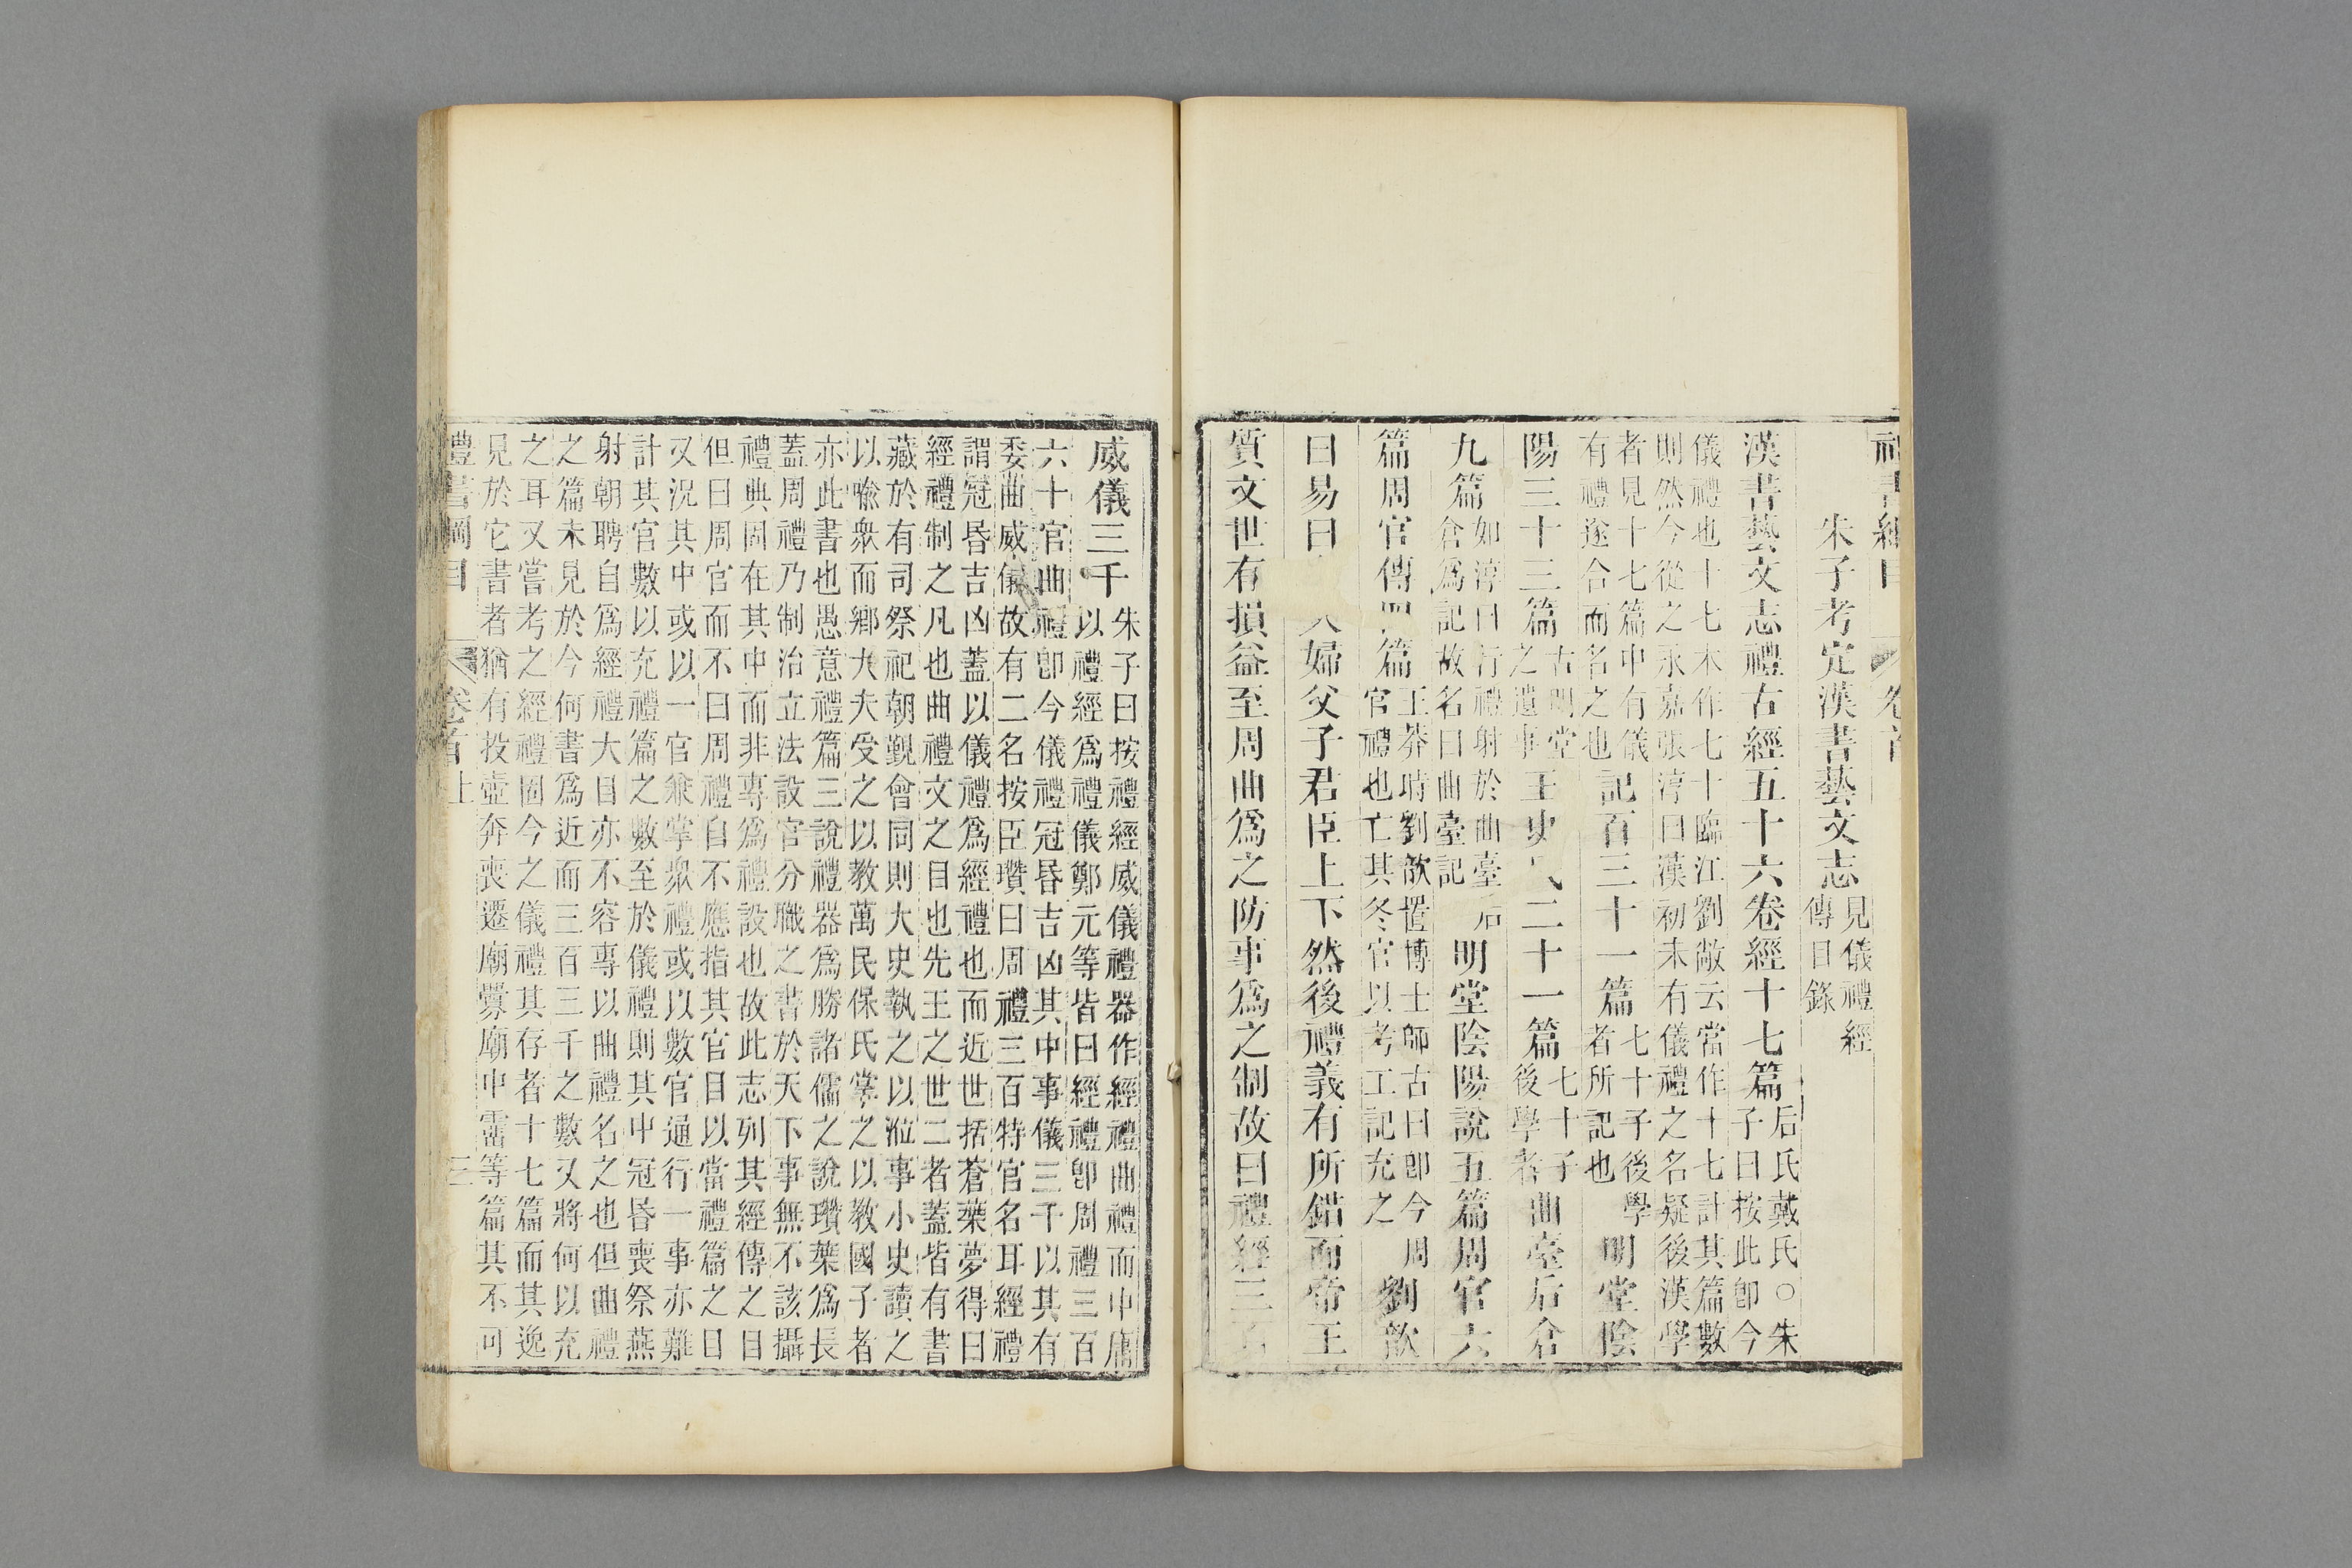 朱子考定漢書藝文志見儀禮經傳目錄
漢書藝文志禮古經五十六卷經十七篇后氏戴氏○朱子曰按此卽今
儀禮也十七本作七十臨江劉敞云當作十七計其篇數則然今從之永嘉張淳曰漢初未有儀禮之名疑後漢學
者見十七篇中有儀有禮遂合而名之也記百三十一篇七十子後學者所記也明堂陰
陽三十三篇古明堂之遺事王史氏二十一篇七十子後學者曲臺后倉
九篇如淳曰行禮射於曲臺后倉爲記故名曰曲臺記明堂陰陽說五篇周官六
篇周官傳四篇王莽時劉歆置博士師古曰卽今周官禮也亡其冬官以考工記充之劉歆
曰易曰 夫婦父子君臣上下然後禮義有所錯而帝王
質文世有損益至周曲爲之防事爲之制故曰禮經三百
威儀三千朱子曰按禮經威儀禮器作經禮曲禮而中庸以禮經爲禮儀鄭元等皆曰經禮卽周禮三百
六十官曲禮卽今儀禮冠昏吉凶其中事儀三千以其有
委曲威儀故有二名按臣瓚曰周禮三百特官名耳經禮
謂冠昏吉凶蓋以儀禮爲經禮也而近世括蒼葉夢得曰
經禮制之凡也曲禮文之目也先王之世二者蓋皆有書
藏於有司祭祀朝覲會同則大史執之以涖事小史讀之
以喩衆而鄉大夫受之以教萬民保氏掌之以教國子者
亦此書也愚意禮篇三說禮器爲勝諸儒之說瓚葉爲長
蓋周禮乃制治立法設官分職之書於天下事無不該攝
禮典固在其中而非專爲禮設也故此志列其經傳之目
但曰周官而不曰周禮自不應指其官目以當禮篇之目
又況其中或以一官兼掌衆禮或以數官通行一事亦難
計其官數以充禮篇之數至於儀禮則其中冠昏喪祭燕
射朝聘自爲經禮大目亦不容專以曲禮名之也但曲禮
之篇未見於今何書爲近而三百三千之數又將何以充
之耳又嘗考之經禮固今之儀禮其存者十七篇而其逸
見於它書者猶有投壺奔喪遷廟釁廟中霤等篇其不可
禮書綱目 卷首上 三